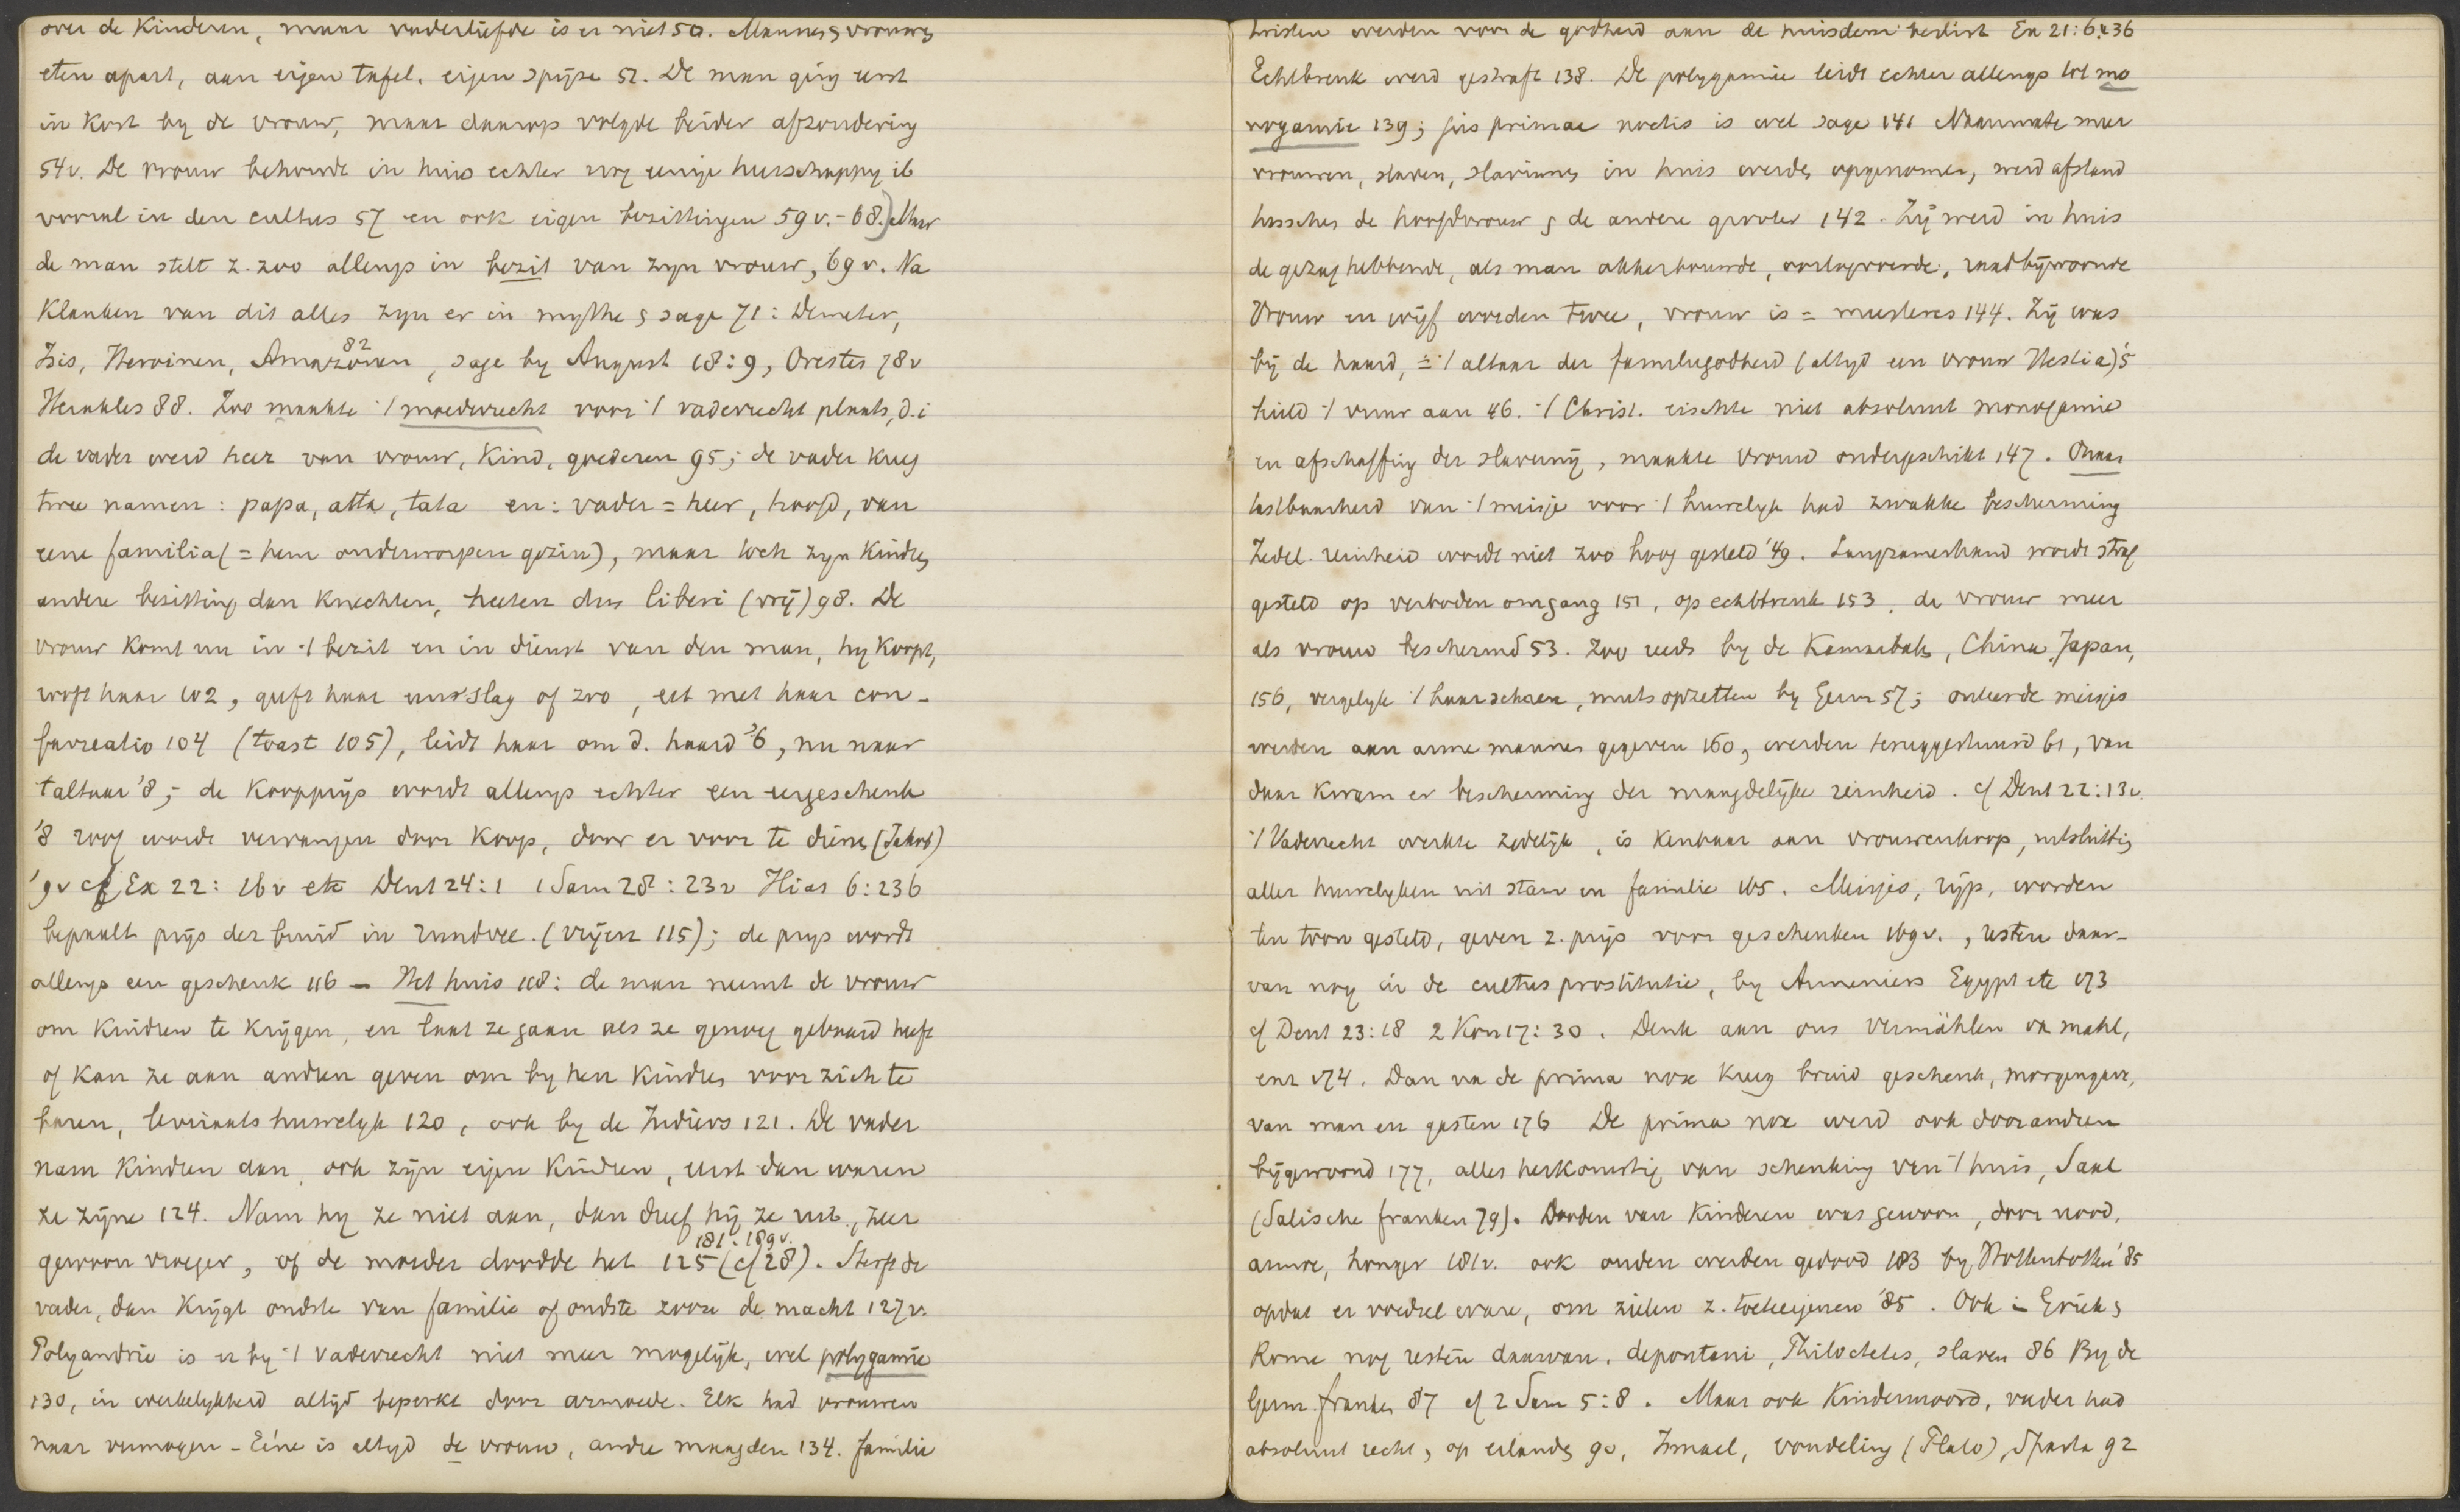 over de Kinderen, maar vaderliefde is er niet 50. Mannen & vrouwen
eten apart, aan eigen tafel, eigen spijze 52. De man ging eerst
in Kost by de vrouw, maar daarop volgde beider afzondering
54v. De vrouw behoudt in huis echter nog eenige heerschappy ib
vooral in den cultus 57 en ook eigen bezittingen 59v.-68.) Maar
de man stelt z. zoo allengs in bezit van zyn vrouw, 69v. Na
Klanken van dit alles zyn er in mythe & sage 71: Demeter,
82
Isis, Heroinen, Amazonen, sage by August 18:9, Orestes 78v
Herakles 88. Zoo maakte 't moederrecht voor 't vaderrecht plaats, d.i
de vader werd heer van vrouw, Kind, goederen 95; de vader kreeg
twee namen: papa, atta, tata en: vader = heer, hoofd, van
eene familia (= hem onderworpen gezin), maar toch zyn Kindren
andere bezitting dan Knechten, heeten dus liberi (vrij) 98. De
vrouw Komt nu in 't bezit en in dienst van den man, hy Koopt,
rooft haar 102, geeft haar een slag of zoo, eet met haar con-
farreatio 104 (toast 105), leidt haar om d. haard '6, nu naar
't altaar '8; de Koopprijs wordt allengs echter een eergeschenk
'8 roof wordt vervangen door Koop, door er voor te dienen (Jakob)
'9v cf Ex 22: 16v etc Deut 24:1 1 Sam 28: 23v Ilias 6:236
bepaalt prijs der bruid in rundvee. (vrijen 115); de prys wordt
allengs een geschenk 116 - Het huis 118: de man neemt de vrouw
om Kindren te Krijgen, en laat ze gaan als ze genoeg gebaard heeft
of Kan ze aan andren geven om by hen Kindren voor zich te
baren, leviraats huwelyk 120, ook by de Indiers 121. De vader
nam Kindren aan, ook zijn eigen Kindren, eerst dan waren
ze zijne 124. Nam hy ze niet aan, dan dreef hij ze uit, zeer
181: 189v.
gewoon vroeger, of de moeder doodde het 125 (cf 28). Sterft de
vader, dan Krijgt oudste van familie of oudste zoon de macht 127v.
Polyandrie is er by 't vaderrecht niet meer mogelijk, wel polygamie
130, in werkelykheid altijd beperkt door armoede. Elk had vrouwen
naar vermogen - Eéne is altyd de vrouw, andre maagden 134. familie
twisten werden voor de godheid aan de huisdeur beslist Ex 21:6. 136
Echtbreuk werd gestraft 138. De polygamie leidt echter allengs tot mo
nogamie 139; jus primae noctis is wel sage 141 Naarmate meer
vrouwen, slaven, slavinnen in huis werden opgenomen, werd afstand
tusschen de hoofdvrouw & de andere grooter 142. Zij werd in huis
de gezag hebbende, als man akkerbouwde, oorlogvoerde, raad bijwoonde
Vrouw en wijf worden twee, vrouw is = meesteres 144. Zij was
bij de haard, = 't altaar der familiegodheid (altijd een vrouw Hestia) '5
hield 't vuur aan 46. 't Christ. eischte niet absoluut monogamie
en afschaffing der slavernij, maakte vrouw ondergeschikt 147. Onaan
tastbaarheid van 't meisje voor 't huwelyk had zwakke bescherming
Zedel. reinheid wordt niet zoo hoog gesteld '49. Langzamerhand wordt straf
gesteld op verboden omgang 151, op echtbreuk 153, de vrouw meer
als vrouw beschermd 53. Zoo reeds by de Kannibalen, China, Japan,
156, vergelyk 't haar scheren, muts opzetten by Germ 57; onteerde meisjes
werden aan arme mannen gegeven 160, werden teruggestuurd 61, van
daar kwam er bescherming der maagdelijke reinheid. cf Deut 22:13v.
't Vaderrecht werkte zedelijk, is Kenbaar aan vrouwenkoop, uitsluiting
aller huwelyken uit stam en familie 165. Meisjes, rijp, worden
ten toon gesteld, geven z. prijs voor geschenken 169v., resten daar-
van nog in de cultus prostitutie, by Armeniers Egypt etc 173
cf Deut 23:18 2 Kon 17:30. Denk aan ons Vermählen van mahl,
enz 174. Dan na de prima nox Kreeg bruid geschenk, morgengave,
van man en gasten 176 De prima nox werd ook door andren
bijgewoond 177, alles herkomstig van schenking van 't huis, Saal
(Salische franken 79). Dooden van Kinderen was gewoon, door nood,
armoe, honger 181v. ook ouden werden gedood 183 by Hottentotten '85
opdat er voedsel ware, om zielen z. toeteeigenen '85. Ook in Griek &
Rome nog resten daarvan, depontani, Philoctetes, slaven 86 By de
Germ. franken 87 cf 2 Sam 5:8. Maar ook Kindermoord, vader had
absoluut recht, op eilanden 90, Ismael, vondeling (Plato), Sparta 92